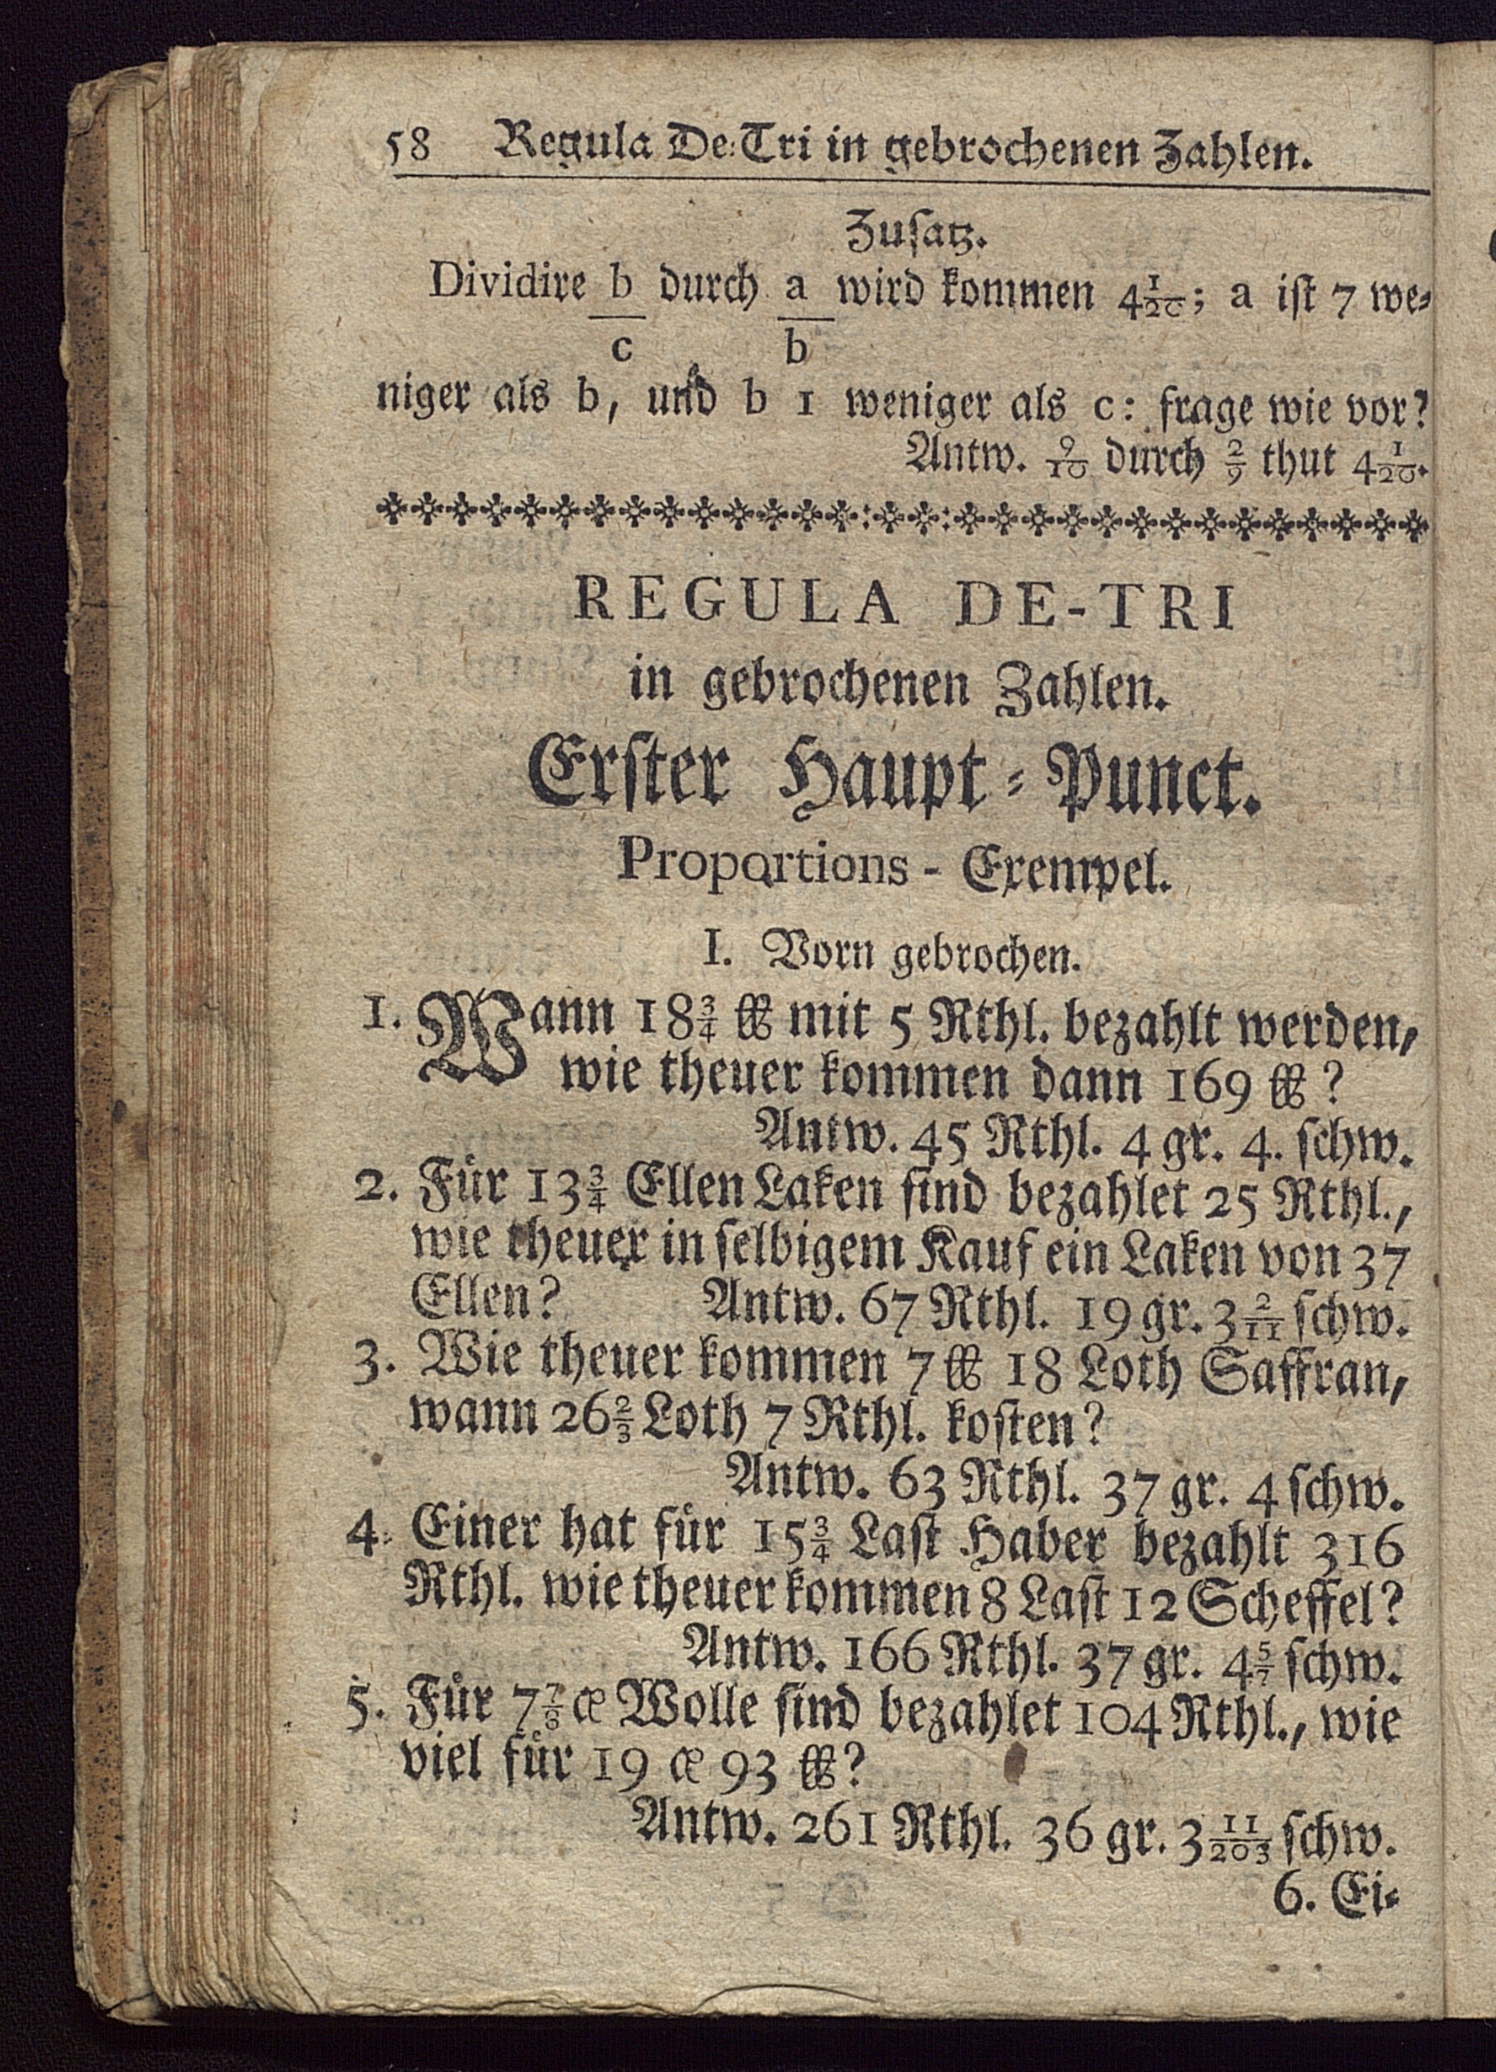 58 Regula De-Tri in gebrochenen Zahlen.
Zusatz.
Dividire b durch a wird kommen 4 1/20; a ist 7 we-
c b
niger als b, und b 1 weniger als c: frage wie vor?
Antw. 9/10 durch 2/9 thut 4 1/20.
REGULA DE-TRI
in gebrochenen Zahlen.
Erster Haupt-Punct.
Proportions-Exempel.
I. Vorn gebrochen.
1. Wann 18 3/4 ℔ mit 5 Rthl. bezahlt werden,
wie theuer kommen dann 169 ℔?
Antw. 45 Rthl. 4 gr. 4. schw.
2. Für 13 3/4 Ellen Laken sind bezahlet 25 Rthl.,
wie theuer in selbigem Kauf ein Laken von 37
Ellen? Antw. 67 Rthl. 19 gr. 3 2/11 schw.
3. Wie theuer kommen 7 ℔ 18 Loth Saffran,
wann 26 2/3 Loth 7 Rthl. kosten?
Antw. 63 Rthl. 37 gr. 4 schw.
4. Einer hat für 15 3/4 Last Haber bezahlt 316
Rthl. wie theuer kommen 8 Last 12 Scheffel?
Antw. 166 Rthl. 37 gr. 4 5/7 schw.
5. Für 7 7/8 æ Wolle sind bezahlet 104 Rthl., wie
viel für 19 æ 93 ℔?
Antw. 261 Rthl. 36 gr. 3 11/203 schw.
6. Ei-